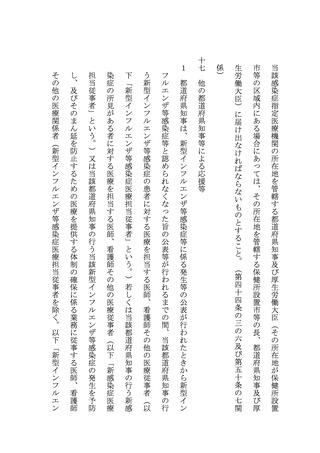 当該感染症指定医療機関の所在地を管轄する都道府県知事及び厚生労働大臣（その所在地が保健所設置
市等の区域内にある場合にあっては、その所在地を管轄する保健所設置市等の長、都道府県知事及び厚
生労働大臣）に届け出なければならないものとすること。（第四十四条の三の六及び第五十条の七関
係）
十七　他の都道府県知事等による応援等
１　都道府県知事は、新型インフルエンザ等感染症等に係る発生等の公表が行われたときから新型イン
フルエンザ等感染症等と認められなくなった旨の公表等が行われるまでの間、当該都道府県知事の行
う新型インフルエンザ等感染症の患者に対する医療を担当する医師、看護師その他の医療従事者（以
下「新型インフルエンザ等感染症医療担当従事者」という。）若しくは当該都道府県知事の行う新感
染症の所見がある者に対する医療を担当する医師、看護師その他の医療従事者（以下「新感染症医療
担当従事者」という。）又は当該都道府県知事の行う当該新型インフルエンザ等感染症の発生を予防
し、及びそのまん延を防止するための医療を提供する体制の確保に係る業務に従事する医師、看護師
その他の医療関係者（新型インフルエンザ等感染症医療担当従事者を除く。以下「新型インフルエン